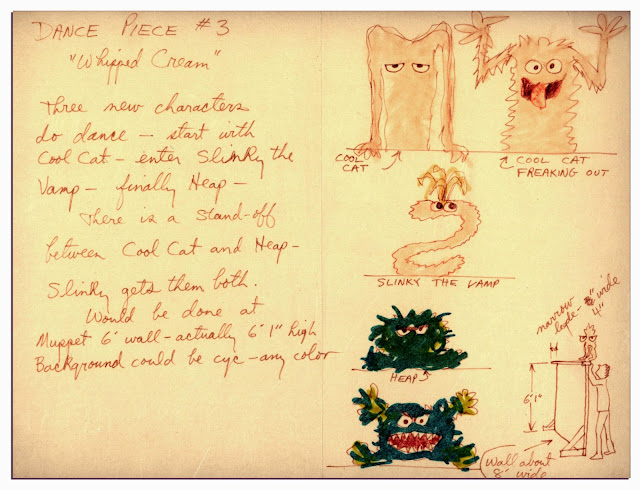 DANCE PIECE #3
"Whipped Cream"
Three new characters
do dance — start with
Cool Cat — enter Slinky the
Vamp — finally Heap —
There is a stand-off
between Cool Cat and Heap —
Slinky gets them both.
Would be done at
Muppet 6' wall — actually 6' 1" high
Background could be cyc — any color
COOL
CAT
COOL CAT
FREAKING OUT
SLINKY THE VAMP
HEAP
narrow
wide
4"
6'1"
Wall about
8' wide